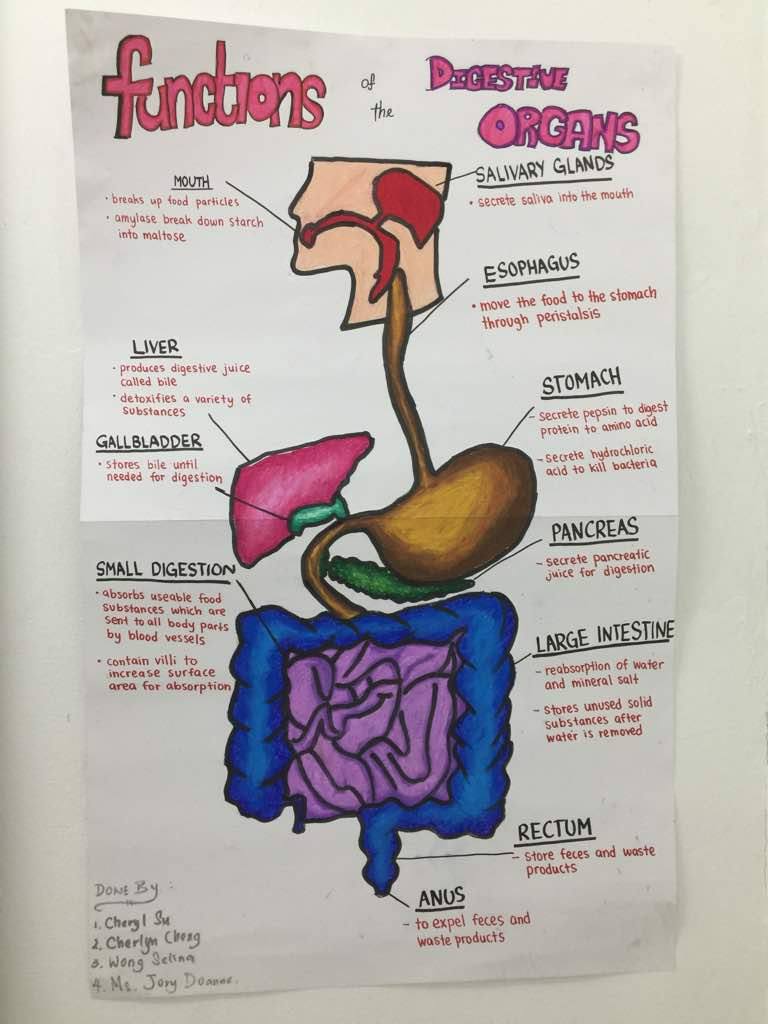 functions of the DIGESTIVE ORGANS
MOUTH
• breaks up food particles
• amylase break down starch
into maltose
SALIVARY GLANDS
• secrete saliva into the mouth
ESOPHAGUS
• move the food to the stomach
through peristalsis
LIVER
• produces digestive juice
called bile
• detoxifies a variety of
substances
STOMACH
– secrete pepsin to digest
protein to amino acid
– secrete hydrochloric
acid to kill bacteria
GALLBLADDER
• stores bile until
needed for digestion
PANCREAS
– secrete pancreatic
juice for digestion
SMALL DIGESTION
• absorbs useable food
substances which are
sent to all body parts
by blood vessels
• contain villi to
increase surface
area for absorption
LARGE INTESTINE
– reabsorption of water
and mineral salt
– stores unused solid
substances after
water is removed
RECTUM
– store feces and waste
products
ANUS
– to expel feces and
waste products
DONE BY :
1. Cheryl Su
2. Cherlyn
3. Wong Selina
4. Ms. Jory